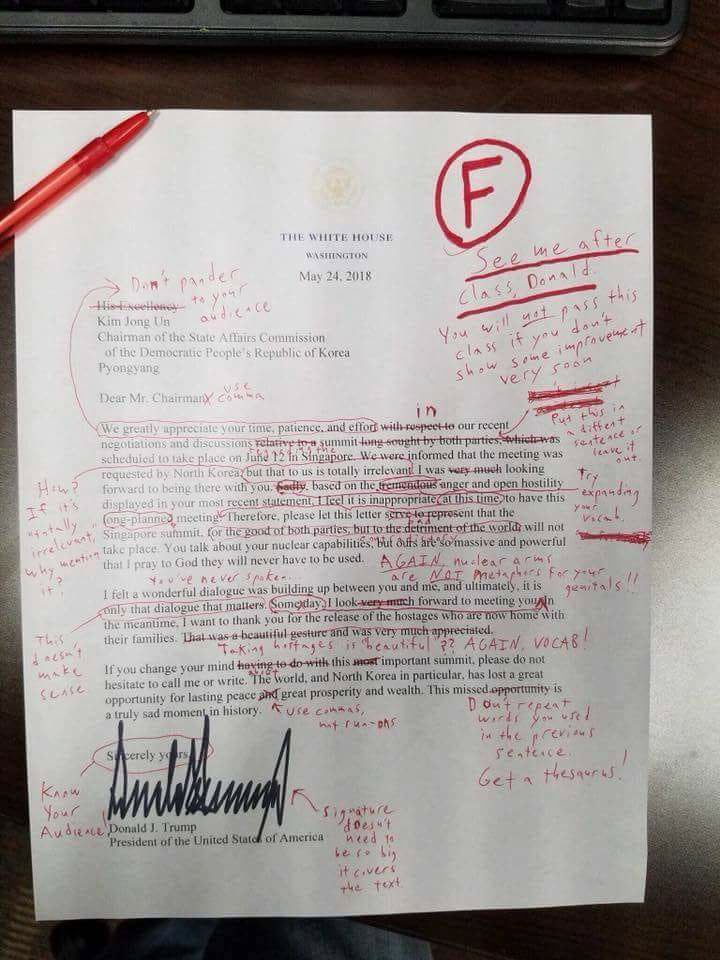 F
See me after
class, Donald.
You will not pass this
class if you don't
show some improvement
very soon
THE WHITE HOUSE
WASHINGTON
May 24, 2018
Don't pander
to your
audience
His Excellency
Kim Jong Un
Chairman of the State Affairs Commission
of the Democratic People's Republic of Korea
Pyongyang
Dear Mr. Chairman
use
comma
in
We greatly appreciate your time, patience, and effort with respect to our recent
negotiations and discussions relative to a summit long sought by both parties, which was
scheduled to take place on June 12 in Singapore. We were informed that the meeting was
requested by North Korea, but that to us is totally irrelevant. I was very much looking
forward to being there with you. Sadly, based on the tremendous anger and open hostility
displayed in your most recent statement, I feel it is inappropriate, at this time, to have this
long-planned meeting. Therefore, please let this letter serve to represent that the
Singapore summit, for the good of both parties, but to the detriment of the world, will not
take place. You talk about your nuclear capabilities, but ours are so massive and powerful
that I pray to God they will never have to be used.
Put this in
a different
sentence or
leave it
out.
Try
expanding
your
vocab.
How?
If it's
totally
irrelevant,
why mention
it?
AGAIN, nuclear arms
are NOT metaphors for your
genitals!!
You've never spoken...
I felt a wonderful dialogue was building up between you and me, and ultimately, it is
only that dialogue that matters. Someday, I look very much forward to meeting you. In
the meantime, I want to thank you for the release of the hostages who are now home with
their families. That was a beautiful gesture and was very much appreciated.
This
doesn't
make
sense
Taking hostages is beautiful?? AGAIN, VOCAB!
If you change your mind having to do with this most important summit, please do not
about
hesitate to call me or write. The world, and North Korea in particular, has lost a great
opportunity for lasting peace and great prosperity and wealth. This missed opportunity is
a truly sad moment in history.
use commas,
not run-ons
Don't repeat
words you used
in the previous
sentence.
Get a thesaurus!
Sincerely yours,
Know
Your
Audience!
Donald J. Trump
President of the United States of America
Signature
doesn't
need to
be so big
it covers
the text.